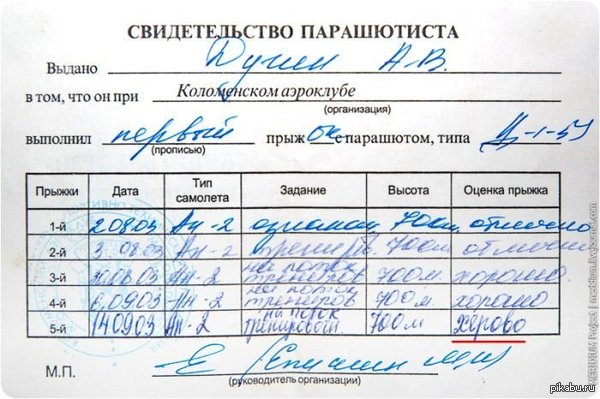 СВИДЕТЕЛЬСТВО ПАРАШЮТИСТА
Выдано А.В.
в том, что он при Коломенском аэроклубе
(организация)
выполнил первый прыжок с парашютом, типа Д-1-5У
(прописью)
Прыжки Дата Тип самолета Задание Высота Оценка прыжка
1-й 20803 Ан-2 ознаком. 700м. отлично
2-й 3.08.03 Ан-2 тренир. 700м отлично
3-й 300803 Ан-2 на поток трениров 700м. хорошо
4-й 6.0903 Ан-2 на поток трениров 700м хорошо
5-й 140903 Ан-2 на поток тренировой 700м херово
М.П.
(руководитель организации)
MERIDIUM Project | meridium.livejournal.com
pikabu.ru